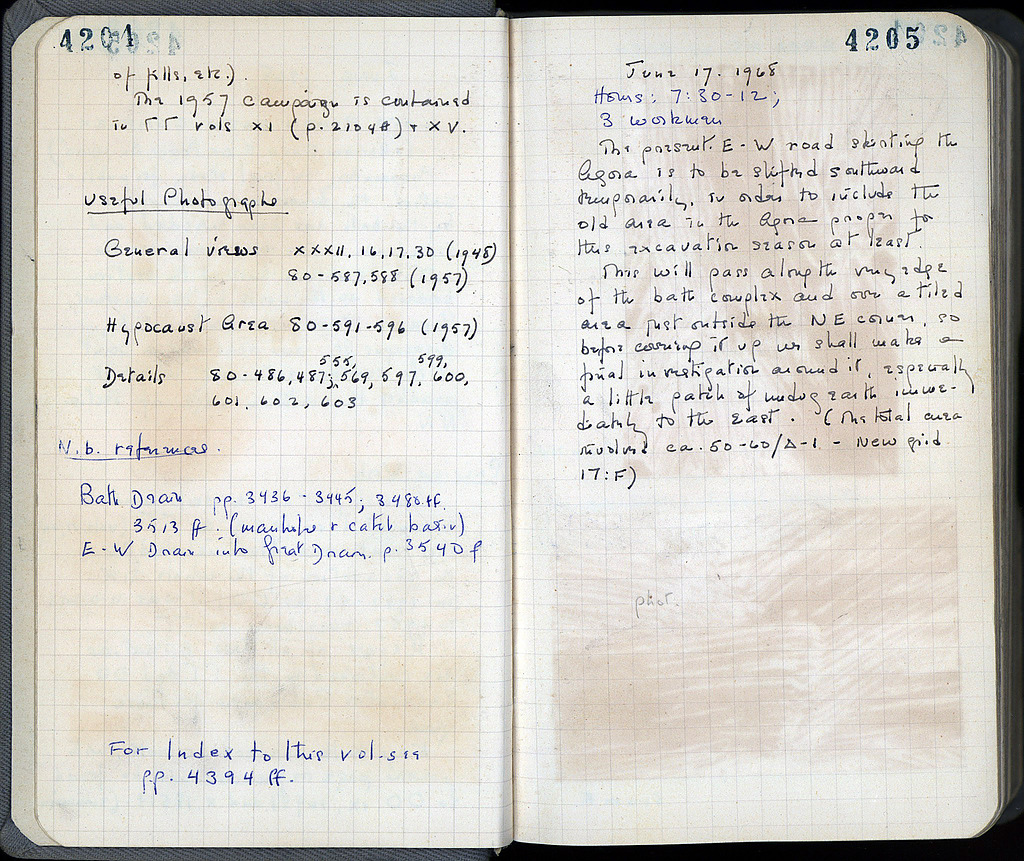 4204
of fills, etc.).
The 1957 campaign is contained
in ΓΓ vols XI (p. 2104ff) + XV.
Useful Photographs
General views XXXII, 16, 17, 30 (1948)
80-587, 588 (1957)
Hypocaust Area 80-591-596 (1957)
555, 599,
Details 80-486, 487; 569, 597, 600,
601, 602, 603
N.b. references.
Bath Drain pp. 3436 - 3445; 3480 ff.
3513 ff. (manhole + catch basin)
E-W Drain into Great Drain. p. 3540 f
For Index to this vol. see
pp. 4394 ff.
4205
June 17. 1968
Hours: 7:30-12;
3 workmen
The present E-W road skirting the
Agora is to be shifted southward
temporarily, in order to include the
old area in the Agora proper for
this excavation season at least.
This will pass along the very edge
of the bath complex and over a tiled
area just outside the NE corner, so
before covering it up we shall make a
final investigation around it, especially
a little patch of undug earth imme-
diately to the east. (The total area
involved ca. 50-60/Δ-1 - New grid
17:F)
phot.